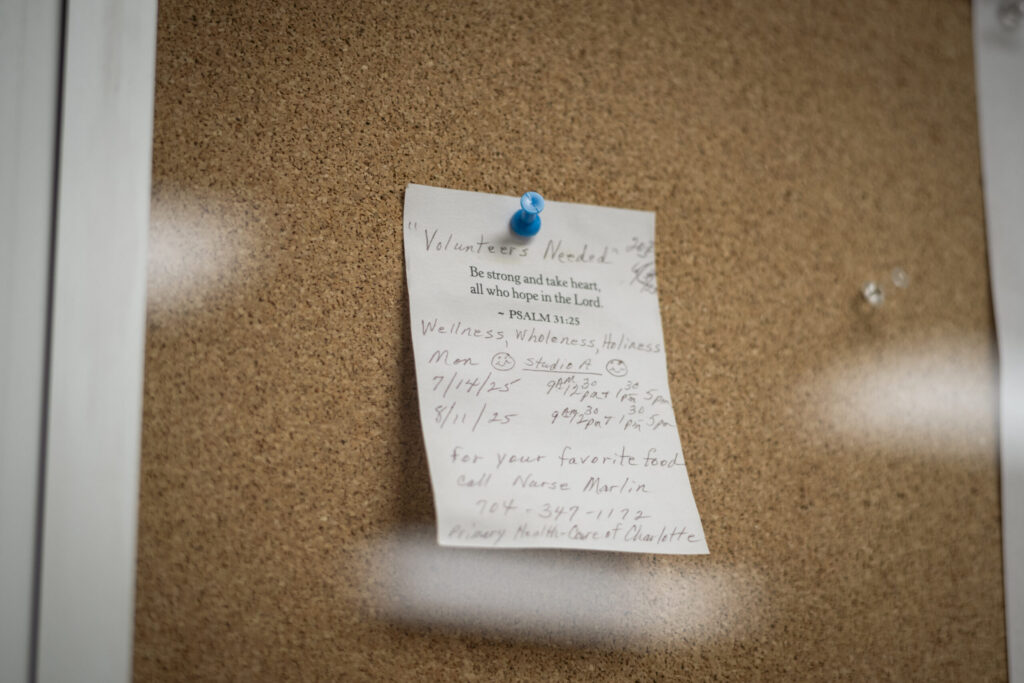 "Volunteers Needed"
Be strong and take heart,
all who hope in the Lord.
~ PSALM 31:25
Wellness, Wholeness, Holiness
Mon Studio A
7/14/25 9AM 12 30 pm + 1 30 pm 5pm
8/11/25 9AM 12 30 pm + 1 30 pm 5pm
For your favorite food
call Nurse Marlin
704-347-1172
Primary Health-Care of Charlotte